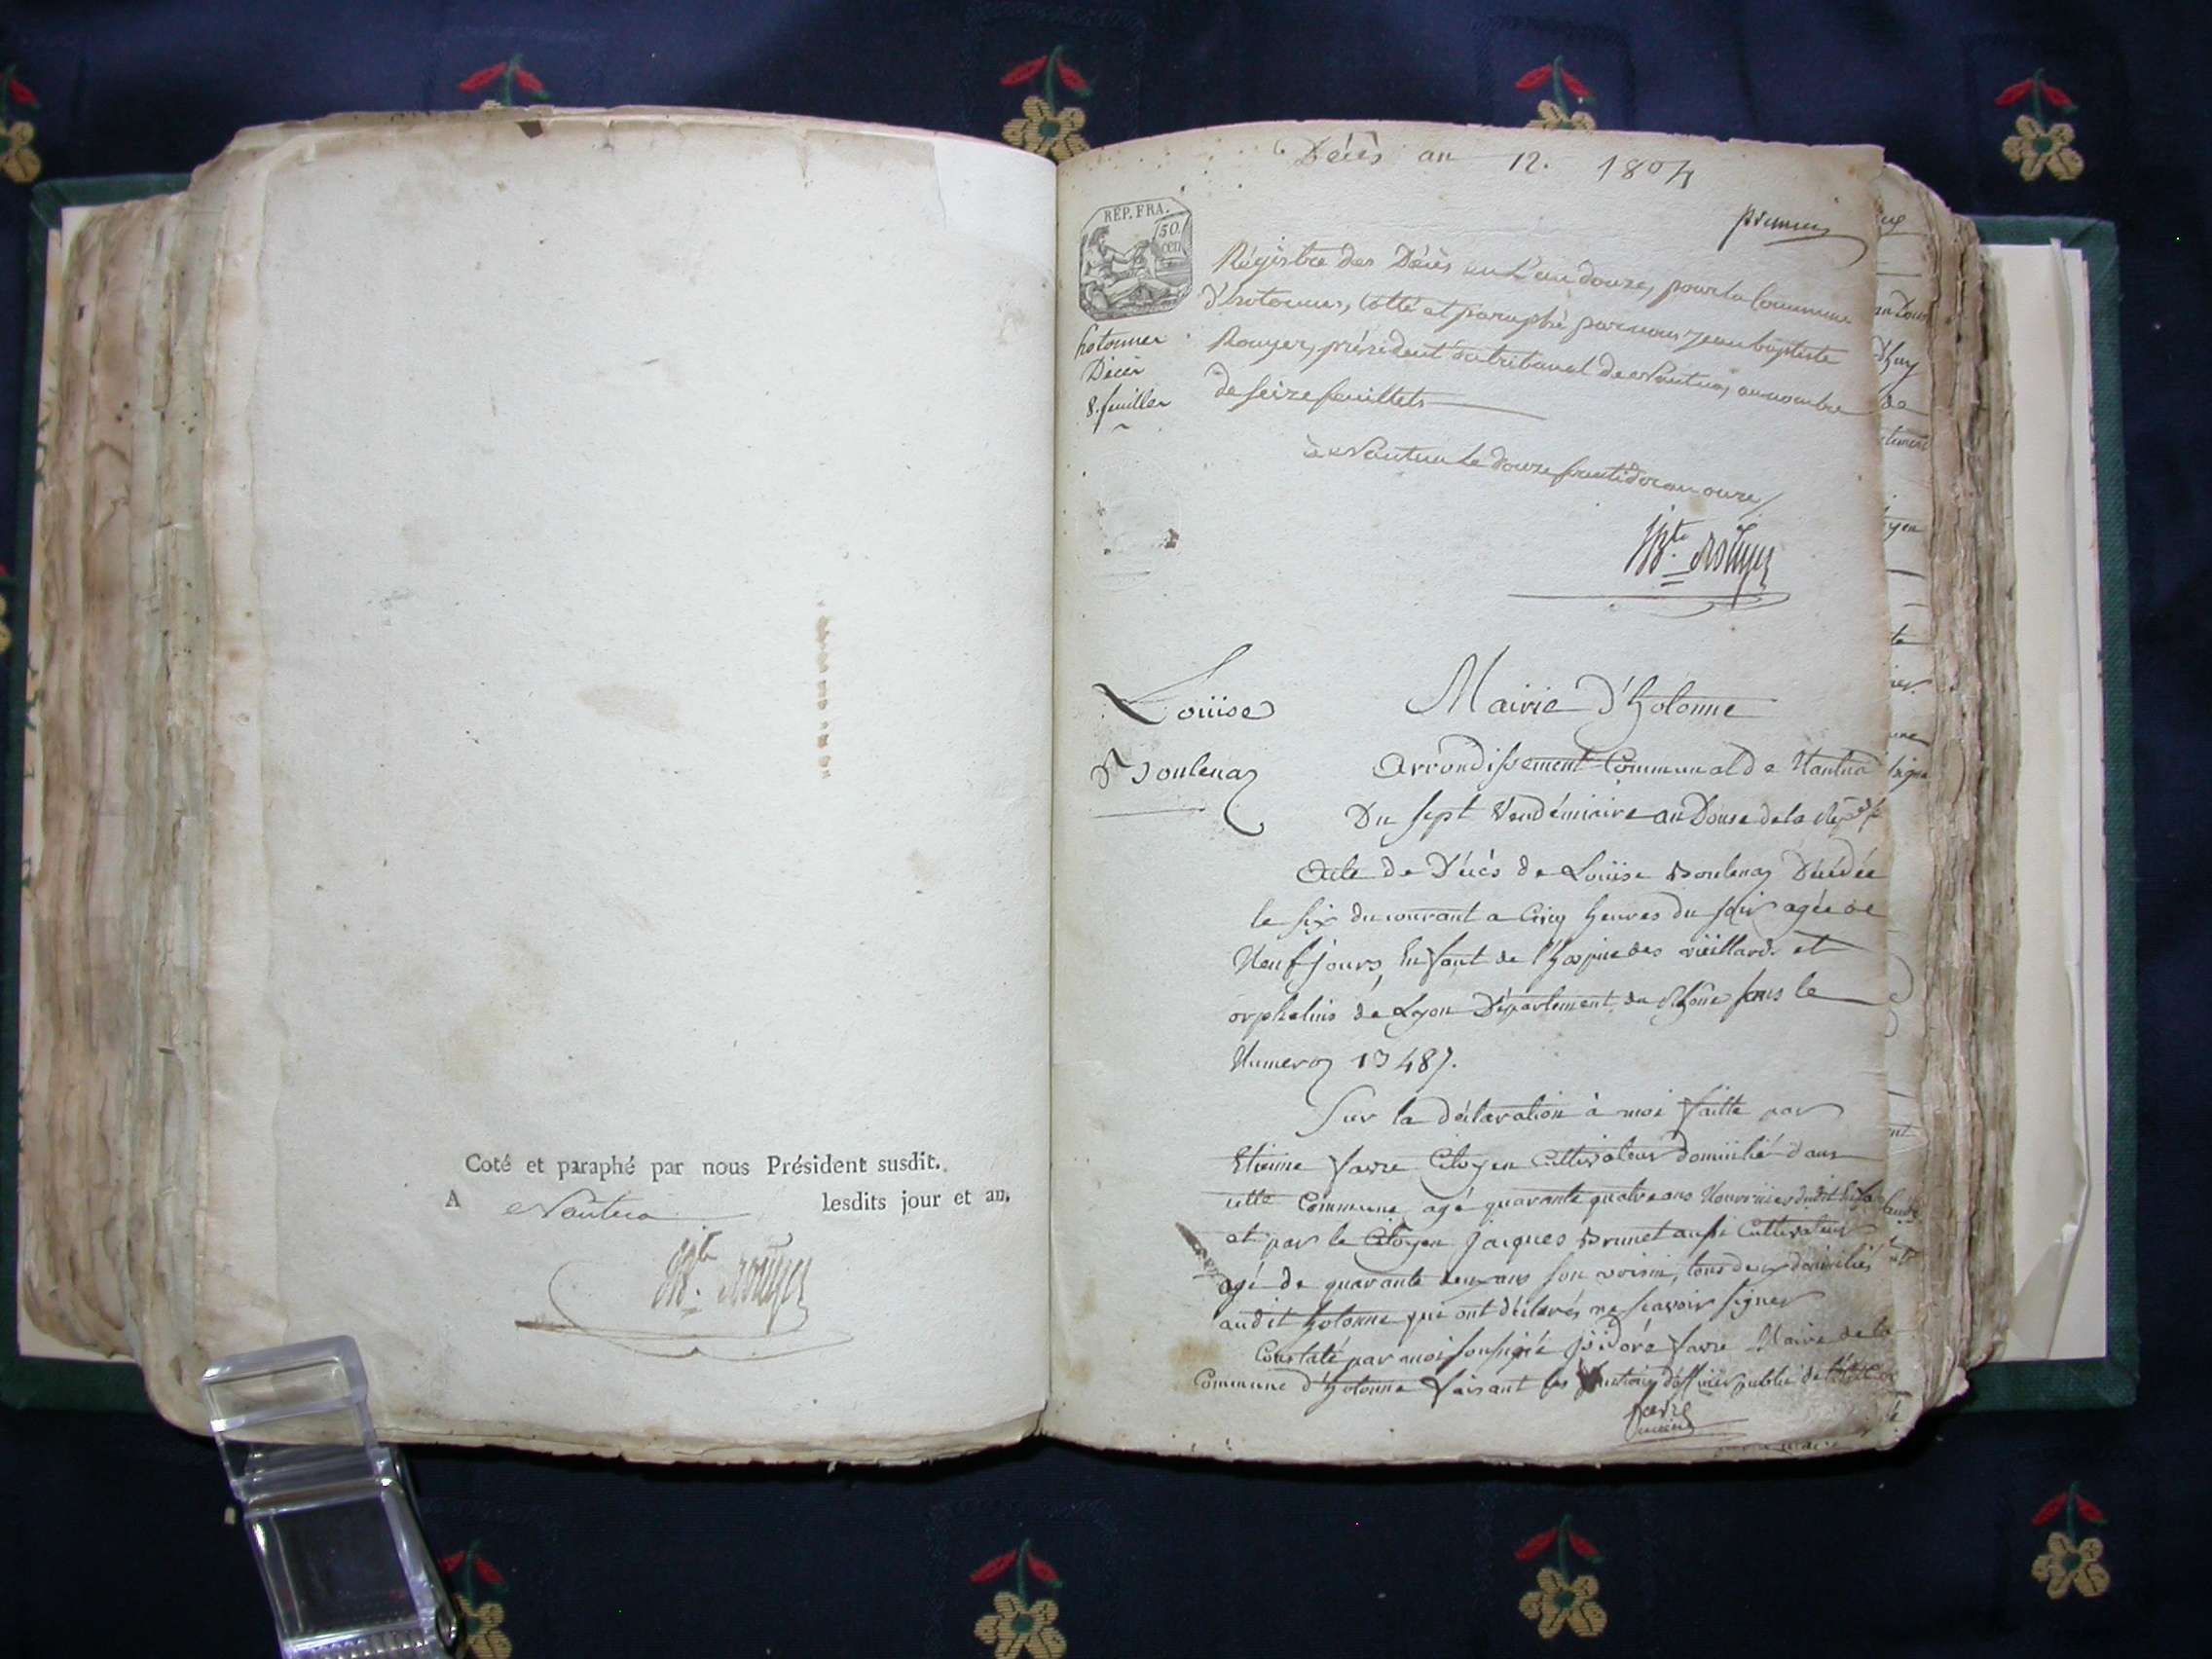 Coté et paraphé par nous Président susdit.
A Nantua lesdits jour et an.
JBte Rouyer
Décès an 12. 1804
premier
REP. FRA.
50.
cen
hotonne
Décès
8. feuilles
Régistre des Décès en L'an douze, pour la Commune
d'hotonnes, Cotté et paraphé par nous jean baptiste
Rouyer, président du tribunal de Nantua, au nombre
de seize feuillets
à Nantua le douze fructidor an onze
JBte Rouyer
Louise
Boulena
Mairie d'hotonne
Arrondissement Communal de Nantua
Du sept Vendémiaire an Douse de la
Acte de Décés de Louïse Boulena Décédée
le six du courant a Cinq heures du soir agée de
Neuf jours, Enfant de l'hospice des vieillards et
orphelins de Lyon Département du Rhône sous le
Numero 13487.
Sur la déclaration à moi faitte par
Etienne favre Citoyen Cultivateur domicilié dans
cette Commune agé quarante quatre ans Nourricier dudit
et par le Citoyen jacques Brunet aussi Cultivateur
agé de quarante deux ans son voisin, tous deux domiciliés
audit hotonne qui ont déclarés ne scavoir signer
Constaté par moi soussigné isidore favre Maire de la
Commune d'hotonne faisant les fonctions d'officier public de
favre